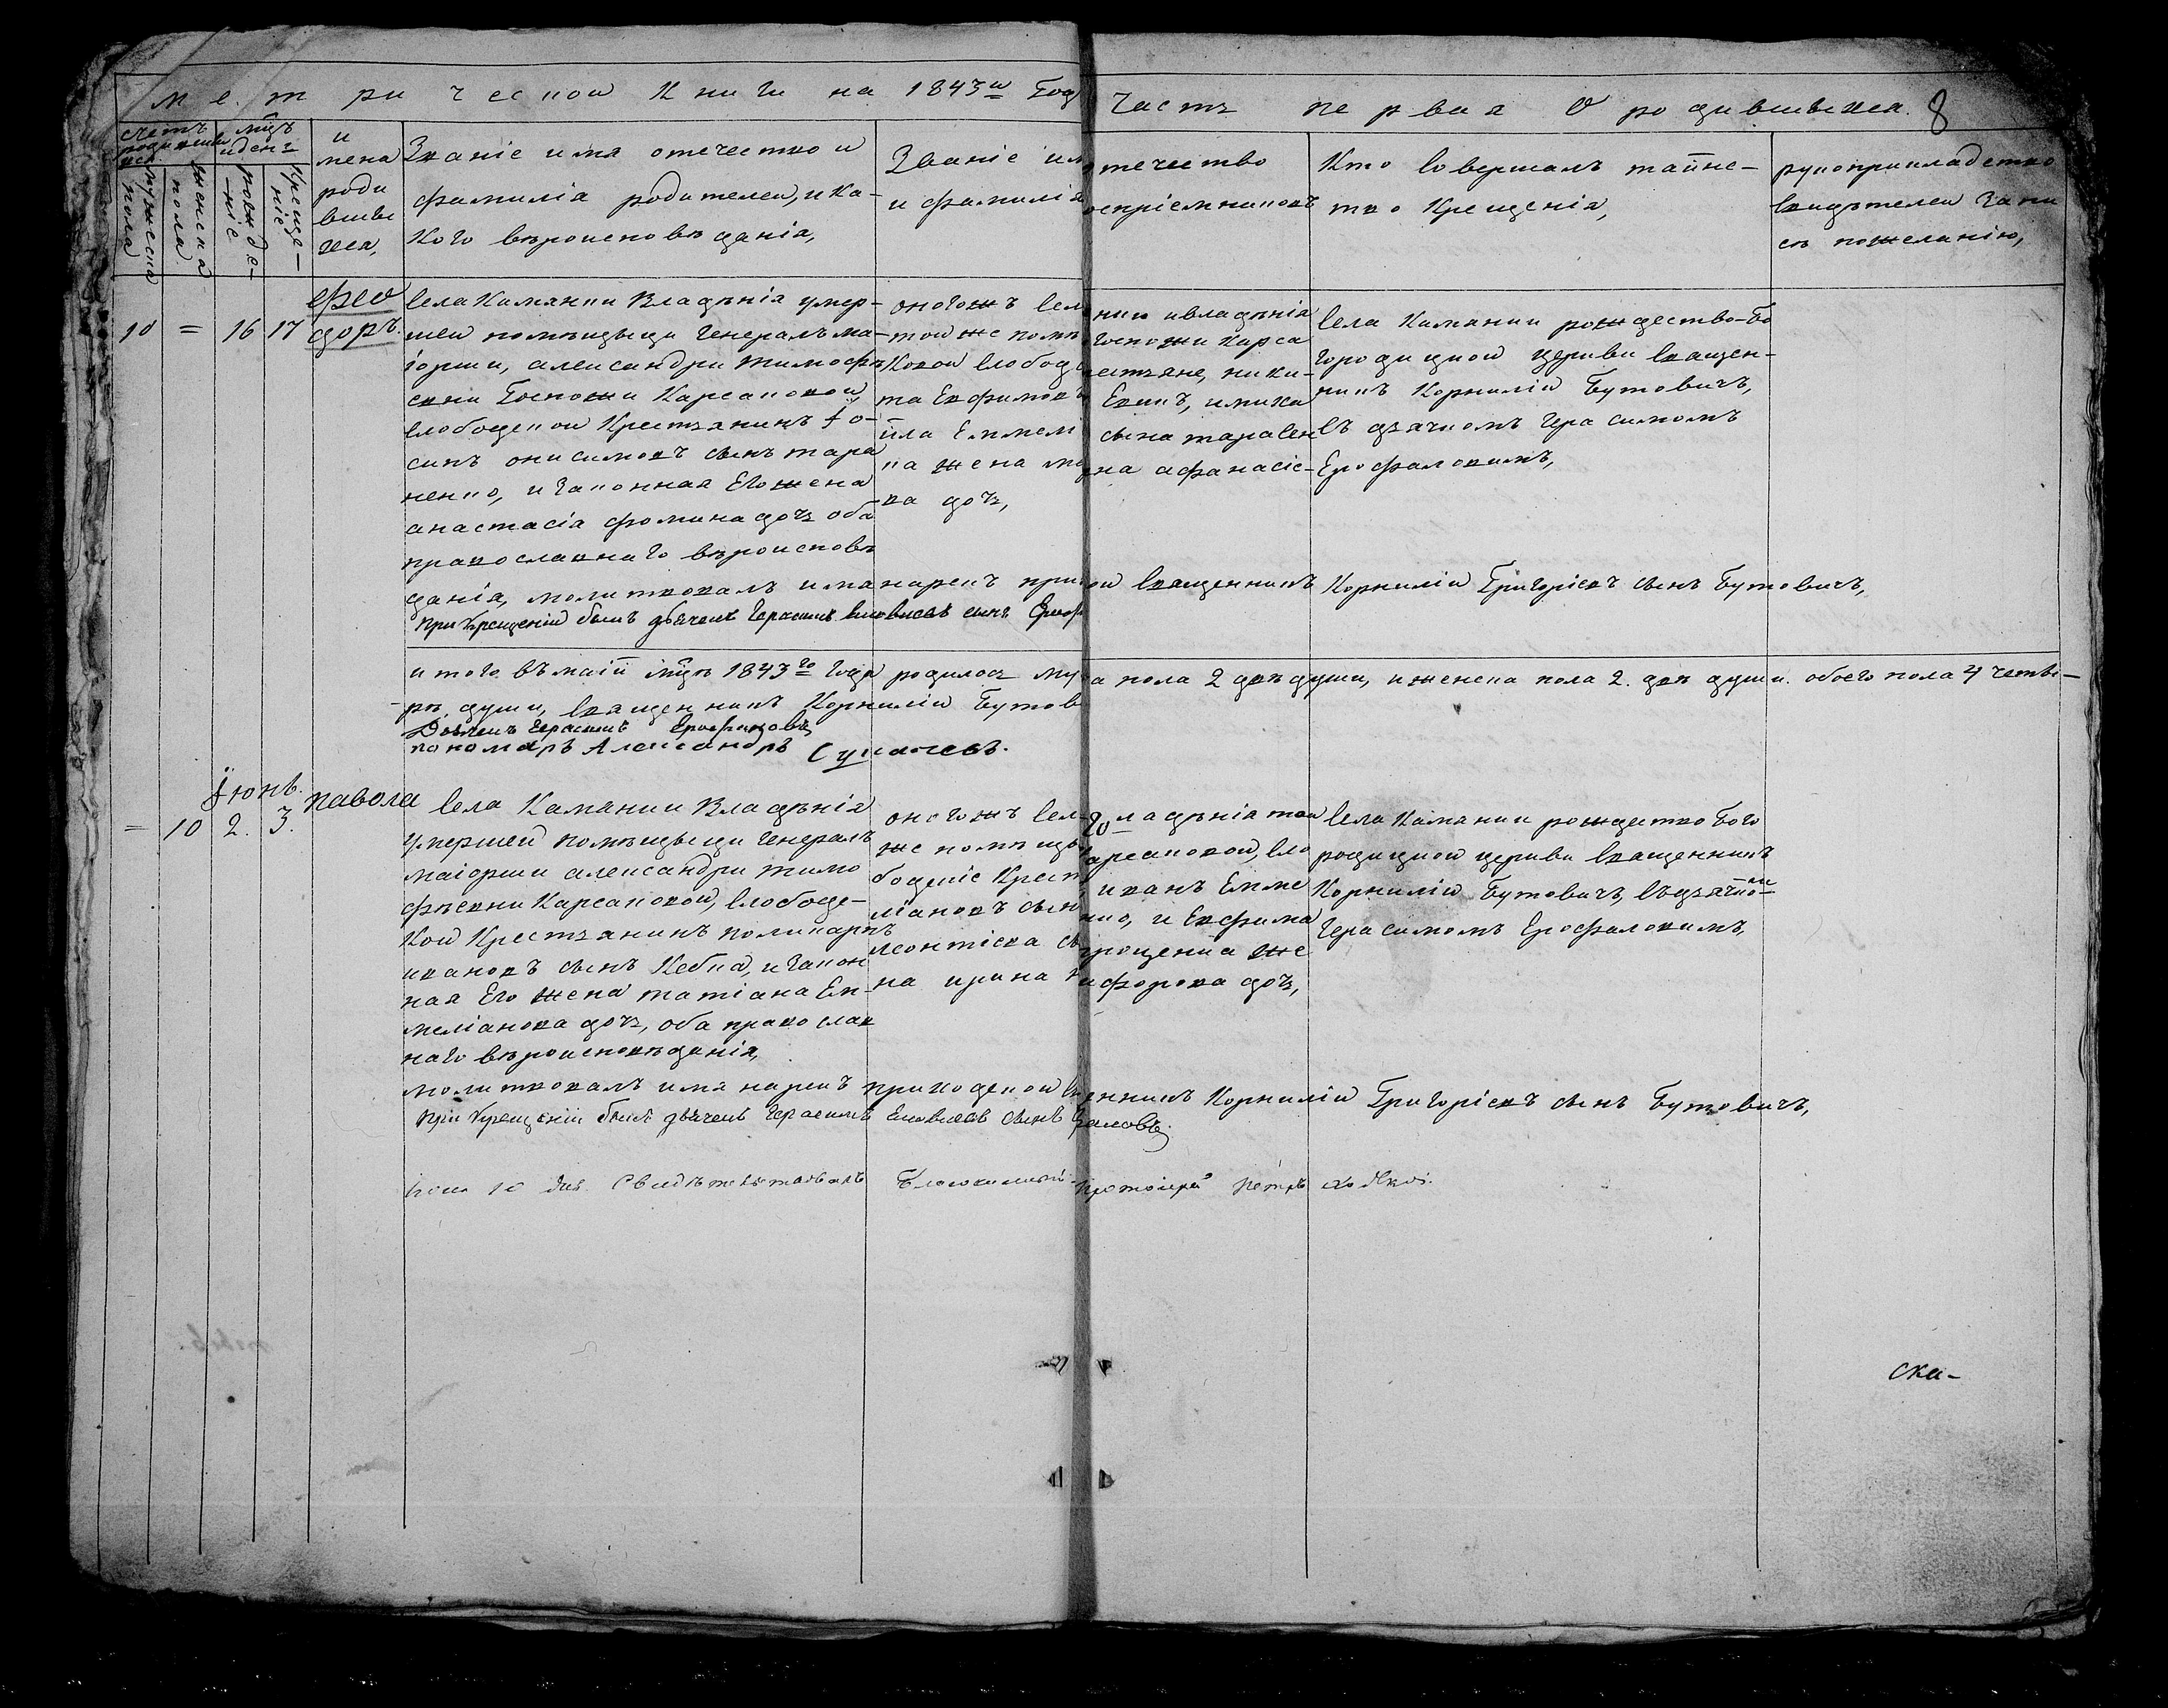 метрической Книги на 1843й Год Часть первая О родившихся. 8
счетъ родившихся
мужеска пола
женска пола
мцъ и день
рожденіе
Крещеніе
имена родившихся,
Званіе имя отечество и
фамилія родителей, и ка-
кого вѣроисповѣданія,
Званіе им отечество
и фамилія воспріемниковъ
Кто совершалъ таинс-
тво Крещенія,
рукоприкладство
свидѣтелей запи
сь пожеланію,
10 = 16 17
Феодоръ.
Села Камянки Владѣнія умер-
шей помѣщыци Генералъ ма-
іорши, александри тимофѣ
евни Госпожи Карсаковой,
слободской Крестьянинъ Іо-
сипъ онисимовъ сынъ тара
ненко, и Законная Его жена
анастасія фомина дочь оба
православнаго вѣроисповѣ
данія, молитвовалъ имя нарекъ при ой священникъ Корнилій Григоріевъ сынъ Бутовичъ,
При Крещеніи былъ дьячекъ Герасимъ сынъ Ероф
оногожъ сел нки ивладѣнія
той же помѣ Госпожи Карса
Ковой слобод естьяне, ники-
та Евфимовъ Евикъ, имиха
ила Еммел сына тарасен
ка жена ма на афанасіе-
ва дочь,
Села Камянки рождество-Бо
городицкой церкви священ-
никъ Корнилій Бутовичъ,
съ дячкомъ Герасимомъ
Ерофаловимъ,
итого въ маіи мцѣ 1843го Года родилось му а пола 2 двѣ души, и женска пола 2. двѣ души. обоего пола 4 четвѣ-
рѣ души, священникъ Корнилій Бутов
Дьячекъ Герасимъ
пономарь Александръ Сукачевъ.
Іюнь.
= 10 2. 3.
павола
Села Камянки Владѣнія
умершей помѣщыци Генералъ
маіорши александри тимо
фѣевни Карсаковой, слободс-
кой Крестьянинъ поликарпъ
ивановъ сынъ Кебка, и Закон
ная Его жена татіана Ем-
меліанова дочь, оба православ
наго вѣроисповѣданія,
молитвовалъ имя нарекъ приходской енникъ Корнилій Григоріевъ сынъ Бутовичъ,
При Крещеніи былъ дьячекъ Герасимъ сынъ фаловъ
оногожъ сел ладѣнія той
же помѣщы арсаковой, сло
бодскіе Крест иванъ Емме
ліановъ сын нко, и Евфима
леонтіева сы троценка же
на ирина никифорова дочь,
Села Камянки рождество Бого
родицкой церкви священникъ
Корнилій Бутовичъ, съ дячко-
Герасимомъ Ерофаловимъ,
10 дня Свидѣтельствовалъ Благочинный протоіерей Петръ
ска-